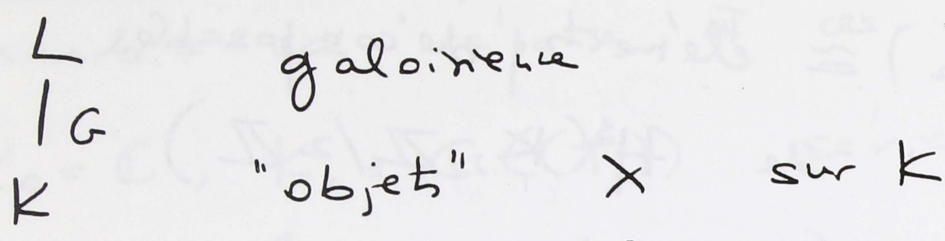 L galoisienne
| G
K "objet" X sur K